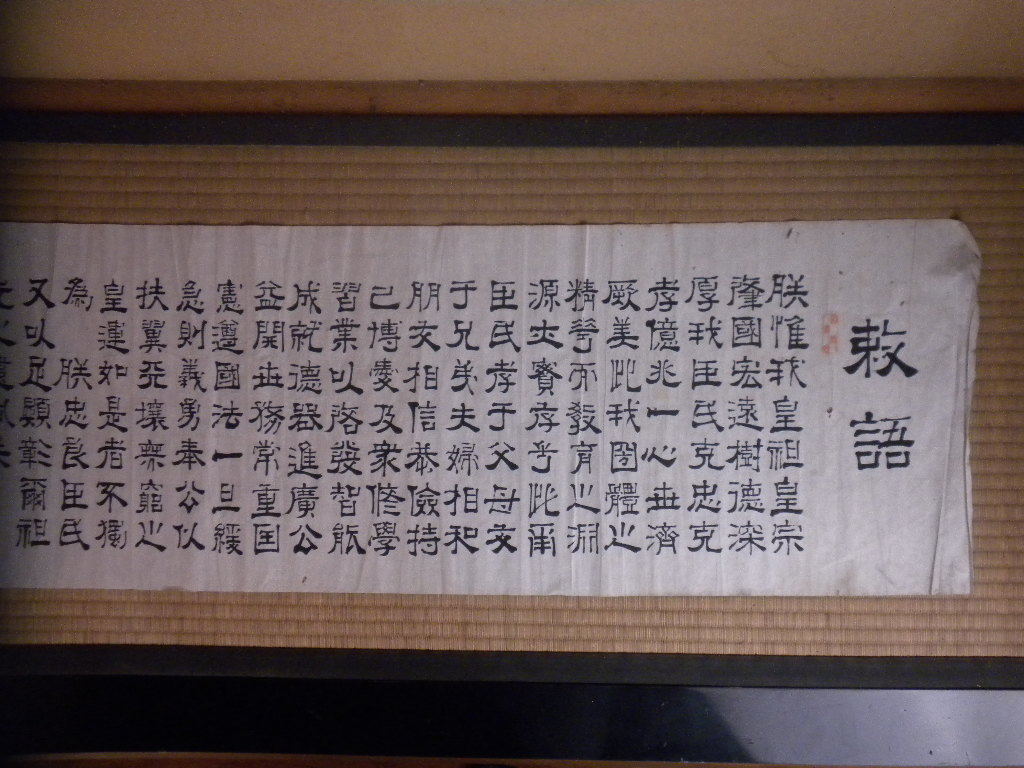 敕語
朕惟我皇祖皇宗
肇國宏遠樹德深
厚我臣民克忠克
孝億兆一心世濟
厥美此我圀體之
精華而教育之淵
源亦實存乎此爾
臣民孝于父母友
于兄弟夫婦相和
朋友相信恭儉持
己博愛及衆修學
習業以啓發智能
成就德器進廣公
益開世務常重国
憲遵國法一旦緩
急則義勇奉公以
扶翼天壤無窮之
皇運如是者不獨
為 朕忠良臣民
又以足顯彰爾祖